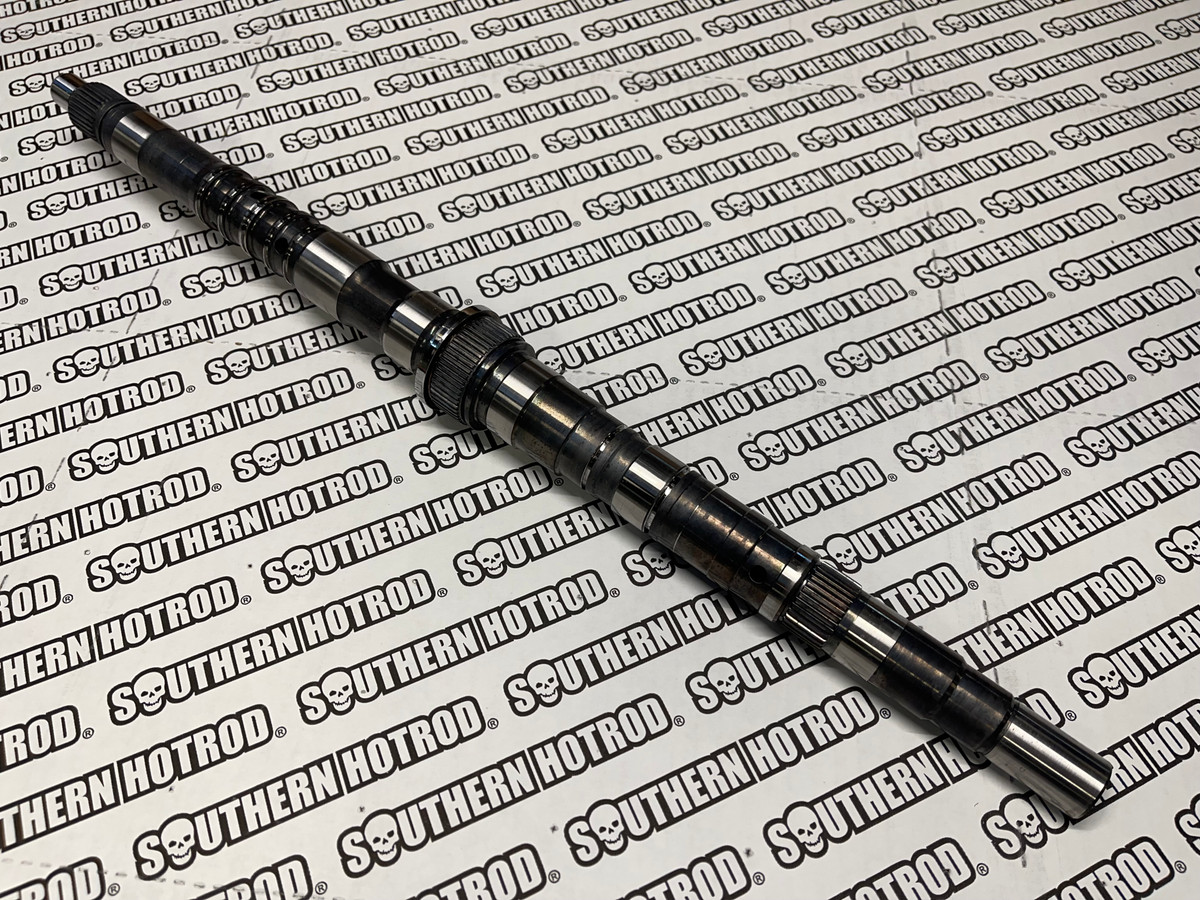 SOUTHERN HOTROD®